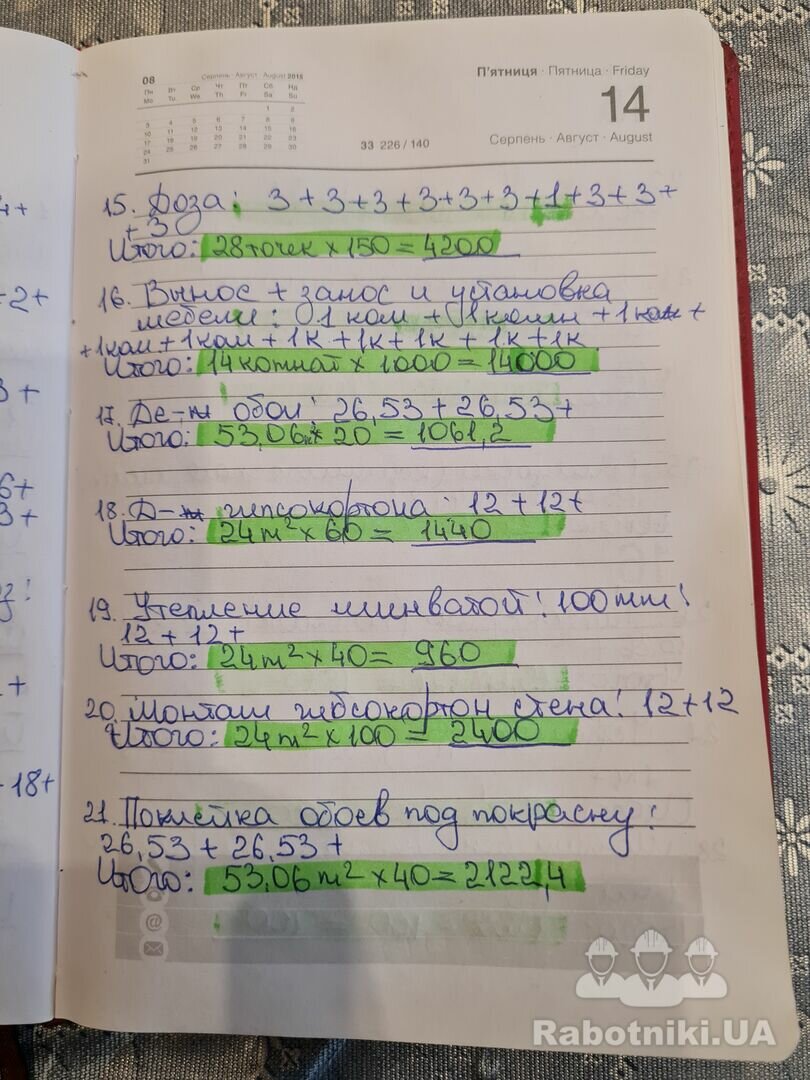 08 Серпень · Август · August 2015
Пн Вт Ср Чт Пт Сб Нд
Mo Tu We Th Fr Sa Su
1 2
3 4 5 6 7 8 9
10 11 12 13 14 15 16
17 18 19 20 21 22 23
24 25 26 27 28 29 30
31
П'ятниця · Пятница · Friday
14
33 226 / 140
Серпень · Август · August
15. Доза: 3+3+3+3+3+3+1+3+3+
+3
Итого: 28 точек x 150 = 4200
16. Вынос + занос и установка
мебели: 1 ком + 1 комн + 1 ком +
+1 ком + 1 ком + 1к + 1к + 1к + 1к + 1к
Итого: 14 комнат x 1000 = 14000
17. Де-ж обои: 26,53 + 26,53 +
Итого: 53,06м² x 20 = 1061,2
18. Д-ж гипсокартона: 12 + 12 +
Итого: 24 m² x 60 = 1440
19. Утепление минватой! 100mm!
12 + 12 +
Итого: 24m² x 40 = 960
20. Монтаж гибсокортон стена! 12+12
Итого: 24m² x 100 = 2400
21. Поклейка обоев под покраску!
26,53 + 26,53 +
Итого: 53,06 m² x 40 = 2122,4
4+
+2+
3+
6+
3+
+
-18+
Rabotniki.UA